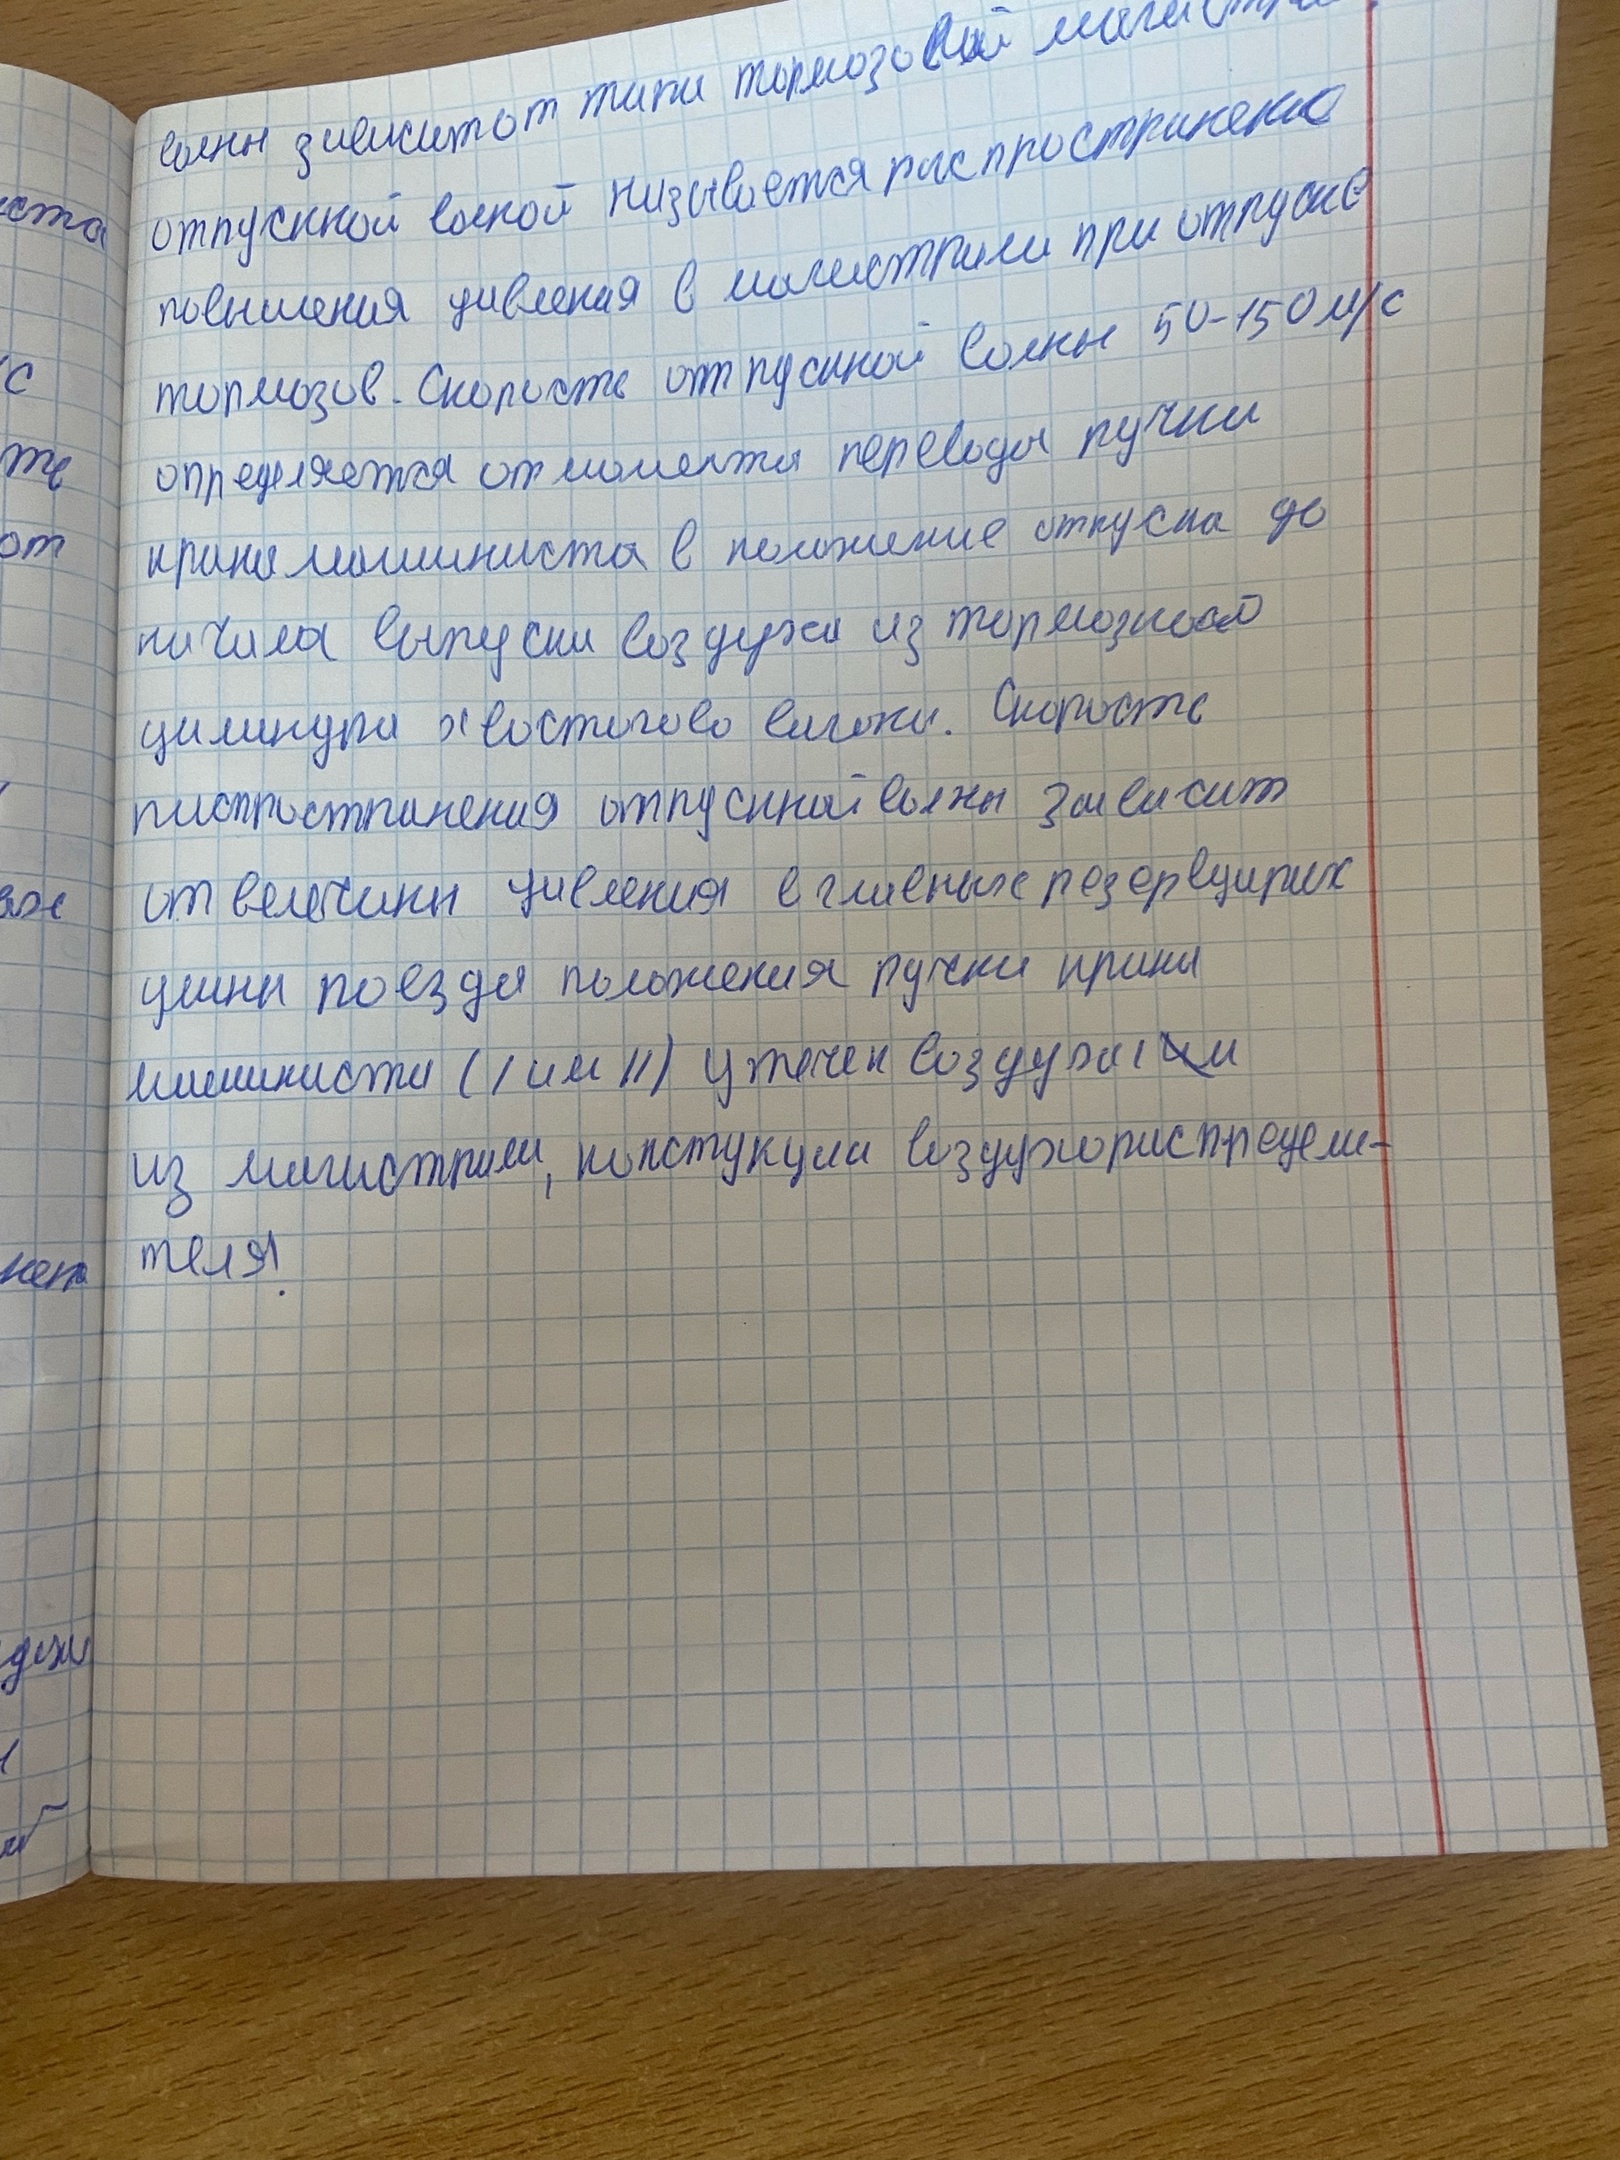 волны зависит от типа тормозовой магистрали.
отпускной волной называется распространение
повышения давления в магистрали при отпуске
тормозов. Скорость отпускной волны 50-150 м/с
определяется от момента перевода ручки
крана машиниста в положение отпуска до
начала выпуска воздуха из тормозного
цилиндра хвостового вагона. Скорость
распространения отпускной волны зависит
от величины давления в главных резервуарах
длины поезда положения ручки крана
машиниста (I или II) утечек воздуха
из магистрали, конструкции воздухораспредели-
теля.